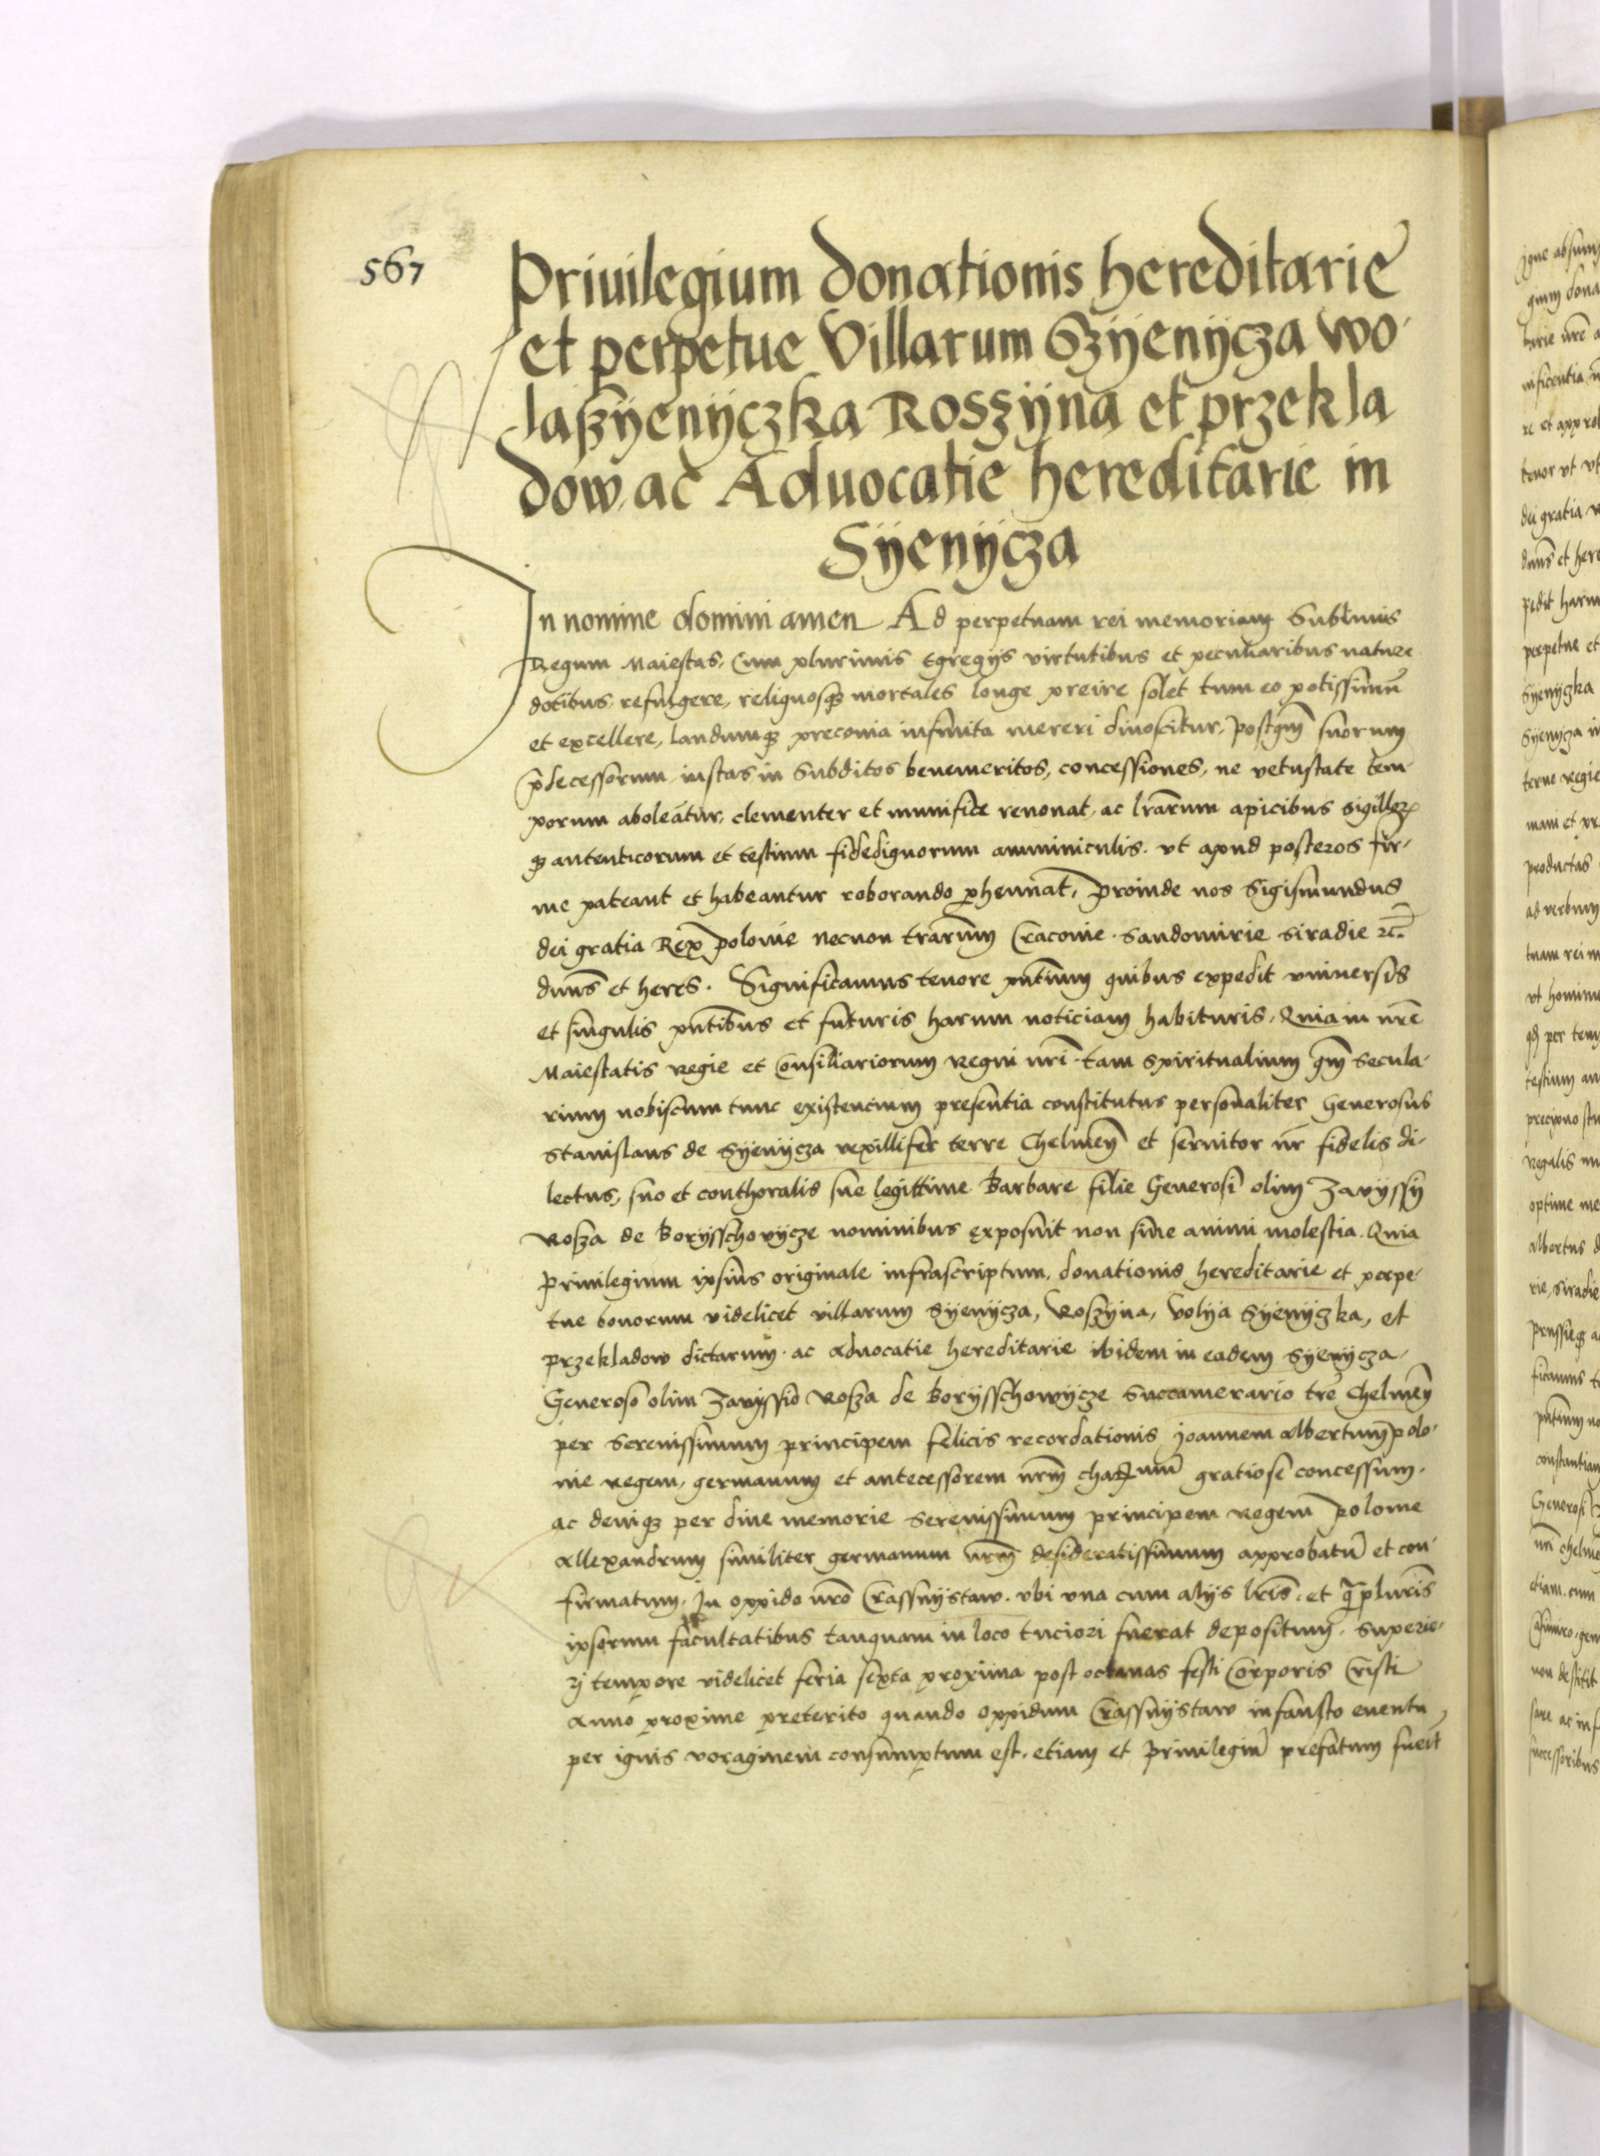 567
Privilegium donationis hereditarie
et perpetue Villarum Szÿenÿcza wo-
laßÿenÿczka Roszÿna et przekla
dow, ac Aduocatie hereditarie in
Sÿenÿcza
In nomine domini amen Ad perpetuam rei memoriam Sublimis
Regum Maiestas, Cum plurimis Egregijs virtutibus et peculiaribus nature
dotibus, refulgere, reliquosqꝫ mortales longe preire solet tum eo potissimū
et excellere, laudumqꝫ preconia infinita mereri dinoscitur, postqm̄ suorum
p̄decessorum iustas in Subditos benemeritos, concessiones, ne vetustate tem-
porum aboleātur, clementer et munifice renouat, ac lr̄arum apicibus sigilloꝝ
qꝫ autenticorum et testium fidedignorum amminiculis. vt apud posteros fir-
me pateant et habeantur roborando perhennat, Proinde nos Sigismundus
dei gratia Rex polonie necnon trārum Cracouie. Sandomirie Siradie ꝛc̄.
dn̄us et heres. Significamus tenore pn̄tium quibus expedit vniuersis
et singulis pn̄tibus et futuris harum noticiam habituris, Quia in nr̄e
Maiestatis regie et Consiliariorum Regni nr̄i. tam Spiritualium qm̄ Secula-
rium nobiscum tunc existencium presentia constitutus personaliter Generosus
Stanislaus de Sÿenÿcza vexillifer terre Chelmeñ et seruitor nr̄ fidelis di-
lectus, suo et conthoralis sue legittime Barbare filie Generosi olim Zavÿssÿ
Rosza de Borÿsschovÿcze nominibus exposuit non sine animi molestia. Quia
Priuilegium ipsius originale infrascriptum, donationis hereditarie et perpe-
tue bonorum videlicet villarum Sÿenÿcza, Roszÿna, Volÿa Sÿenÿczka, et
przekladow dictarum. ac aduocatie hereditarie ibidem in eadem Sÿenÿcza.
Generoso olim Zavÿssio Rosza de Borÿsschowÿcze Succamerario trē Chelmeñ
per Serenissimum principem felicis recordationis Joannem Albertum polo-
nie regem, germanum et antecessorem nr̄m charmū gratiose concessum.
ac deniqꝫ per diue memorie Serenissimum principem regem Polonie
Allexandrum similiter germanum nr̄m desideratissimum approbatū et con-
firmatum. In oppido nr̄o Crassnÿstaw. vbi vna cum alijs lrīs. et q̄ pluris
ipsorum facultatibus tanquam in loco tuciori fuerat depositum. Superio-
rj tempore videlicet feria sexta proxima post octauas festi Corporis Cristi
Anno proxime preterito quando oppidum Crassnÿstaw infausto euentu,
per ignis voraginem consumptum est, etiam et Priuilegiū prefatum fuerit